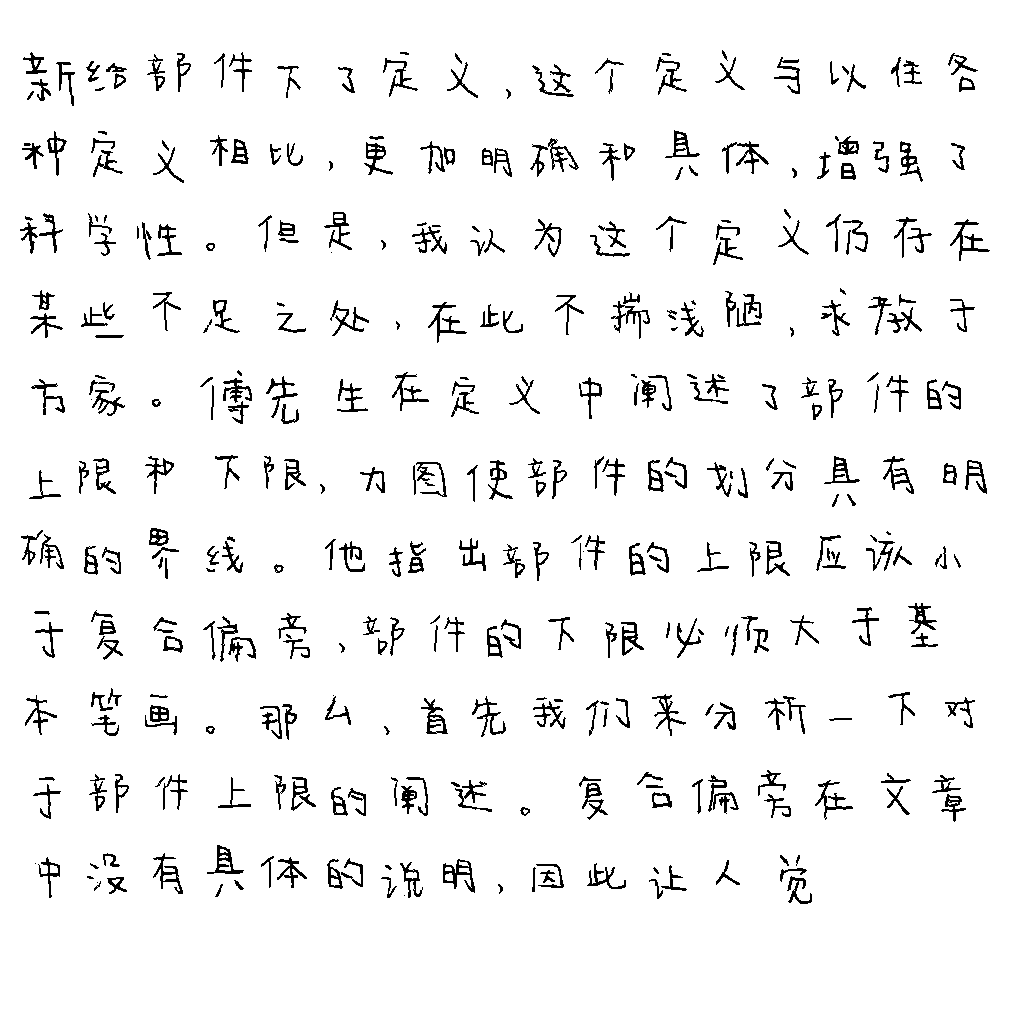 新给部件下了定义，这个定义与以往各
种定义相比，更加明确和具体，增强了
科学性。但是，我认为这个定义仍存在
某些不足之处，在此不揣浅陋，求教于
方家。傅先生在定义中阐述了部件的
上限和下限，力图使部件的划分具有明
确的界线。他指出部件的上限应该小
于复合偏旁，部件的下限必须大于基
本笔画。那么，首先我们来分析一下对
于部件上限的阐述。复合偏旁在文章
中没有具体的说明，因此让人觉